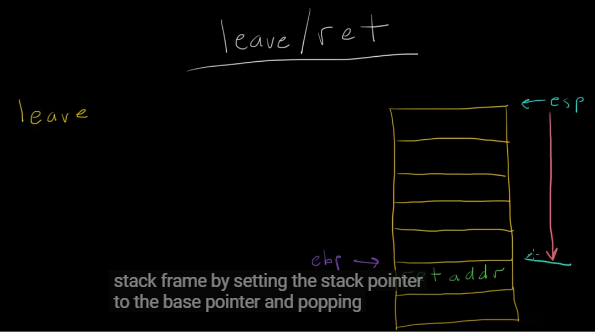 leave/ret
leave
←esp
ebp →
ret addr
stack frame by setting the stack pointer
to the base pointer and popping